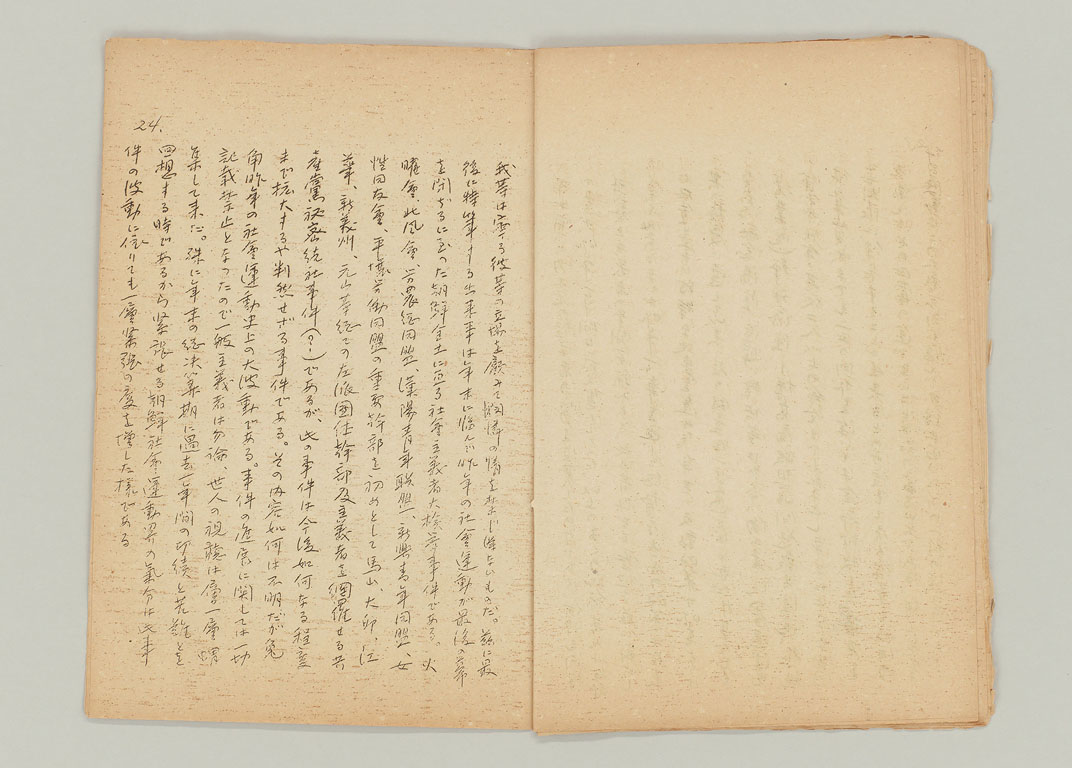 我等は寧ろ彼等の立場を顧みて同情の情を禁じ得ないものだ。茲に最
後に特筆する出来事は年末に臨んで昨年の社會運動が最後の幕
を閉ぢるに至った朝鮮全土に亘る社會主義者大檢擧事件である。火
曜會、北風會、労農総同盟、漢陽青年聯盟、新興青年同盟、女
性同友會、平壌労働同盟の重要幹部を初めとして馬山、大邱、江
華、新義州、元山等総ての左派團体幹部及主義者を網羅せる共
産黨秘密結社事件(?)であるが、此の事件は今後如何なる程度
まで拡大するや判然せざる事件である。その内容如何は不明だが兔
角昨年の社會運動史上の大波動である。事件の真相に関しては一切
記載禁止となったので一般主義者は勿論、世人の視聴は層一層蝟
集して来た。殊に年末の総決算期に過去一年間の功績と苦難を
回想する時であるから緊張せる朝鮮社會運動界の氣分は此事
件の波動に依りても一層緊張の度を増した様である
24.